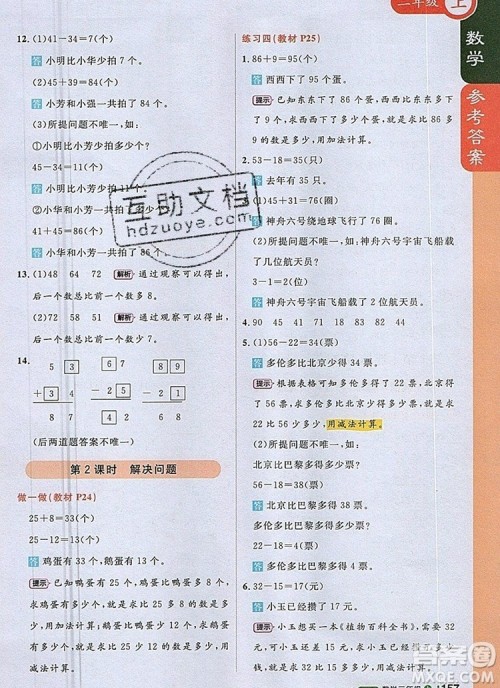 二年级 上
数学 参考答案
12. 41－34＝7(个)
答 小明比小华多拍了 7 个。
答 小芳和小强一共拍了 84 个。
(3)所提问题不唯一,如:
①小明比小芳少拍多少个?
45－34＝11(个)
41＋45＝86(个)
13. (1)48 64 72 解析 通过观察可以得出,
后一个数总比前一个数多 8。
(2)72 58 51 解析 通过观察可以得出,
后一个数总比前一个数少 7。
14.
(后两道题答案不唯一)
第 2 课时 解决问题
做一做(教材 P24)
25＋8＝33(个)
25－16＝9(个)
答 鸡蛋有 33 个,鹅蛋有 9 个。
提示 已知鸭蛋有 25 个,鸡蛋比鸭蛋多 8 个,
求鸡蛋有多少个,就是求比 25 多 8 的数是多
少,用加法计算。已知鸭蛋有 25 个,鹅蛋比鸭
蛋少 16 个,求鹅蛋有多少个,就是求比 25 少
16 的数是多少,用减法计算。
练习四(教材 P25)
1. 86＋9＝95(个)
答 西西下了 95 个蛋。
提示 已知东东下了 86 个蛋,西西比东东多下
了 9 个蛋,求西西下了多少个蛋,就是求比 86 多
9 的数是多少,用加法计算。
2. 53－18＝35(只)
答 去年有 35 只。
答 神舟六号绕地球飞行了 76 圈。
(2)所提问题不唯一,如:
神舟六号宇宙飞船比神舟五号宇宙飞船多载
了几位航天员?
3－1＝2(位)
答 神舟六号宇宙飞船多载了 2 位航天员。
4. 90 45 41 91 17 34 82 24 77
5. (1)56－22＝34(票)
答 多伦多比北京少得 34 票。
提示 根据表格可知多伦多得了 22 票,北京得
了 56 票,求多伦多比北京少得多少票,就是求
22 比 56 少多少,用减法计算。
(2)所提问题不唯一,如:
北京比巴黎多得多少票?
56－18＝38(票)
答 北京比巴黎多得 38 票。
多伦多比巴黎多得多少票?
22－18＝4(票)
答 多伦多比巴黎多得 4 票。
6. 32－15＝17(元)
答 小玉已经攒了 17 元。
提示 小玉想买一本《植物百科全书》需要 32
互助文档
hdzuoye.com